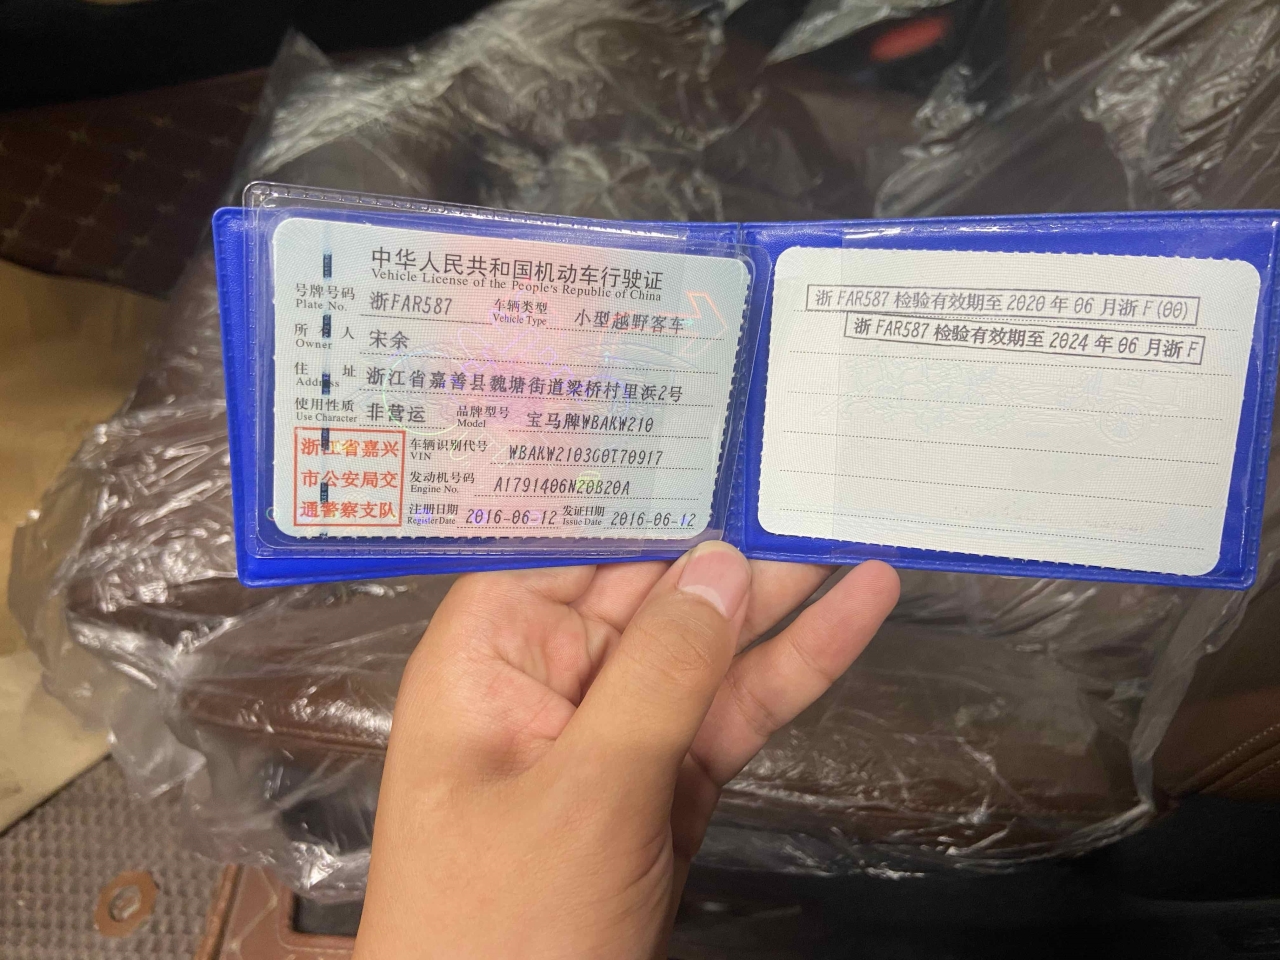 中华人民共和国机动车行驶证
Vehicle License of the People's Republic of China
号牌号码 浙FAR587 车辆类型 小型越野客车
Plate No. Vehicle Type
所有人 宋余
Owner
住址 浙江省嘉善县魏塘街道梁桥村里浜2号
Address
使用性质 非营运 品牌型号 宝马牌WBAKW210
Use Character Model
浙江省嘉兴
市公安局交
通警察支队
车辆识别代号 WBAKW2103G0T70917
VIN
发动机号码 A1791406N20B20A
Engine No.
注册日期 2016-06-12 发证日期 2016-06-12
Register Date Issue Date
浙FAR587 检验有效期至 2020 年 06 月浙F(00)
浙FAR587 检验有效期至 2024 年 06 月浙F